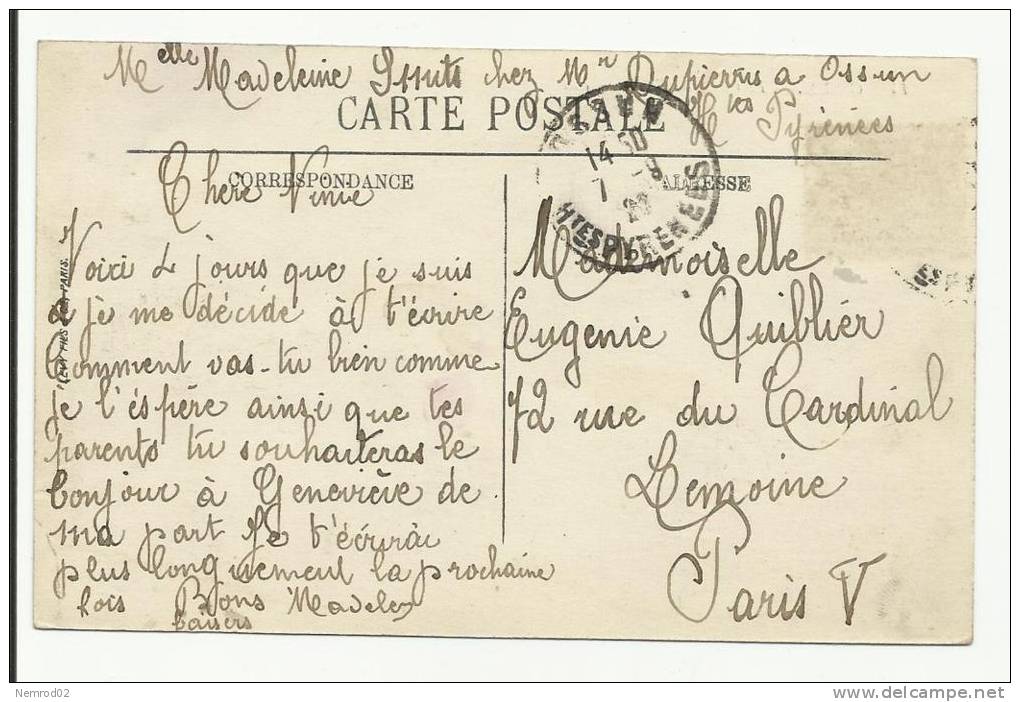 Melle Madeleine Smits chez Mr Dupierris a Ossun
Htes Pyrénées
CARTE POSTALE
CORRESPONDANCE
ADRESSE
Chere Ninie
Voici 4 jours que je suis
à je me décide à t'écrire
Comment vas-tu bien comme
je l'éspère ainsi que tes
parents tu souhaiteras le
bonjour à Geneviève de
ma part Je t'écrirai
plus longuement la prochaine
fois Bons Madelei
baisers
Mademoiselle
Eugenie Quiblier
72 rue du Cardinal
Lemoine
Paris V
14 50
7 -8
HTES PYRENEES
PARIS.
Nemrod02
www.delcampe.net